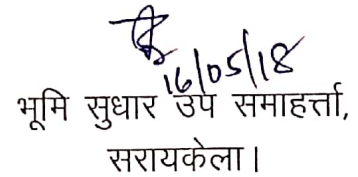 16/05/18
भूमि सुधार उप समाहर्त्ता,
सरायकेला।